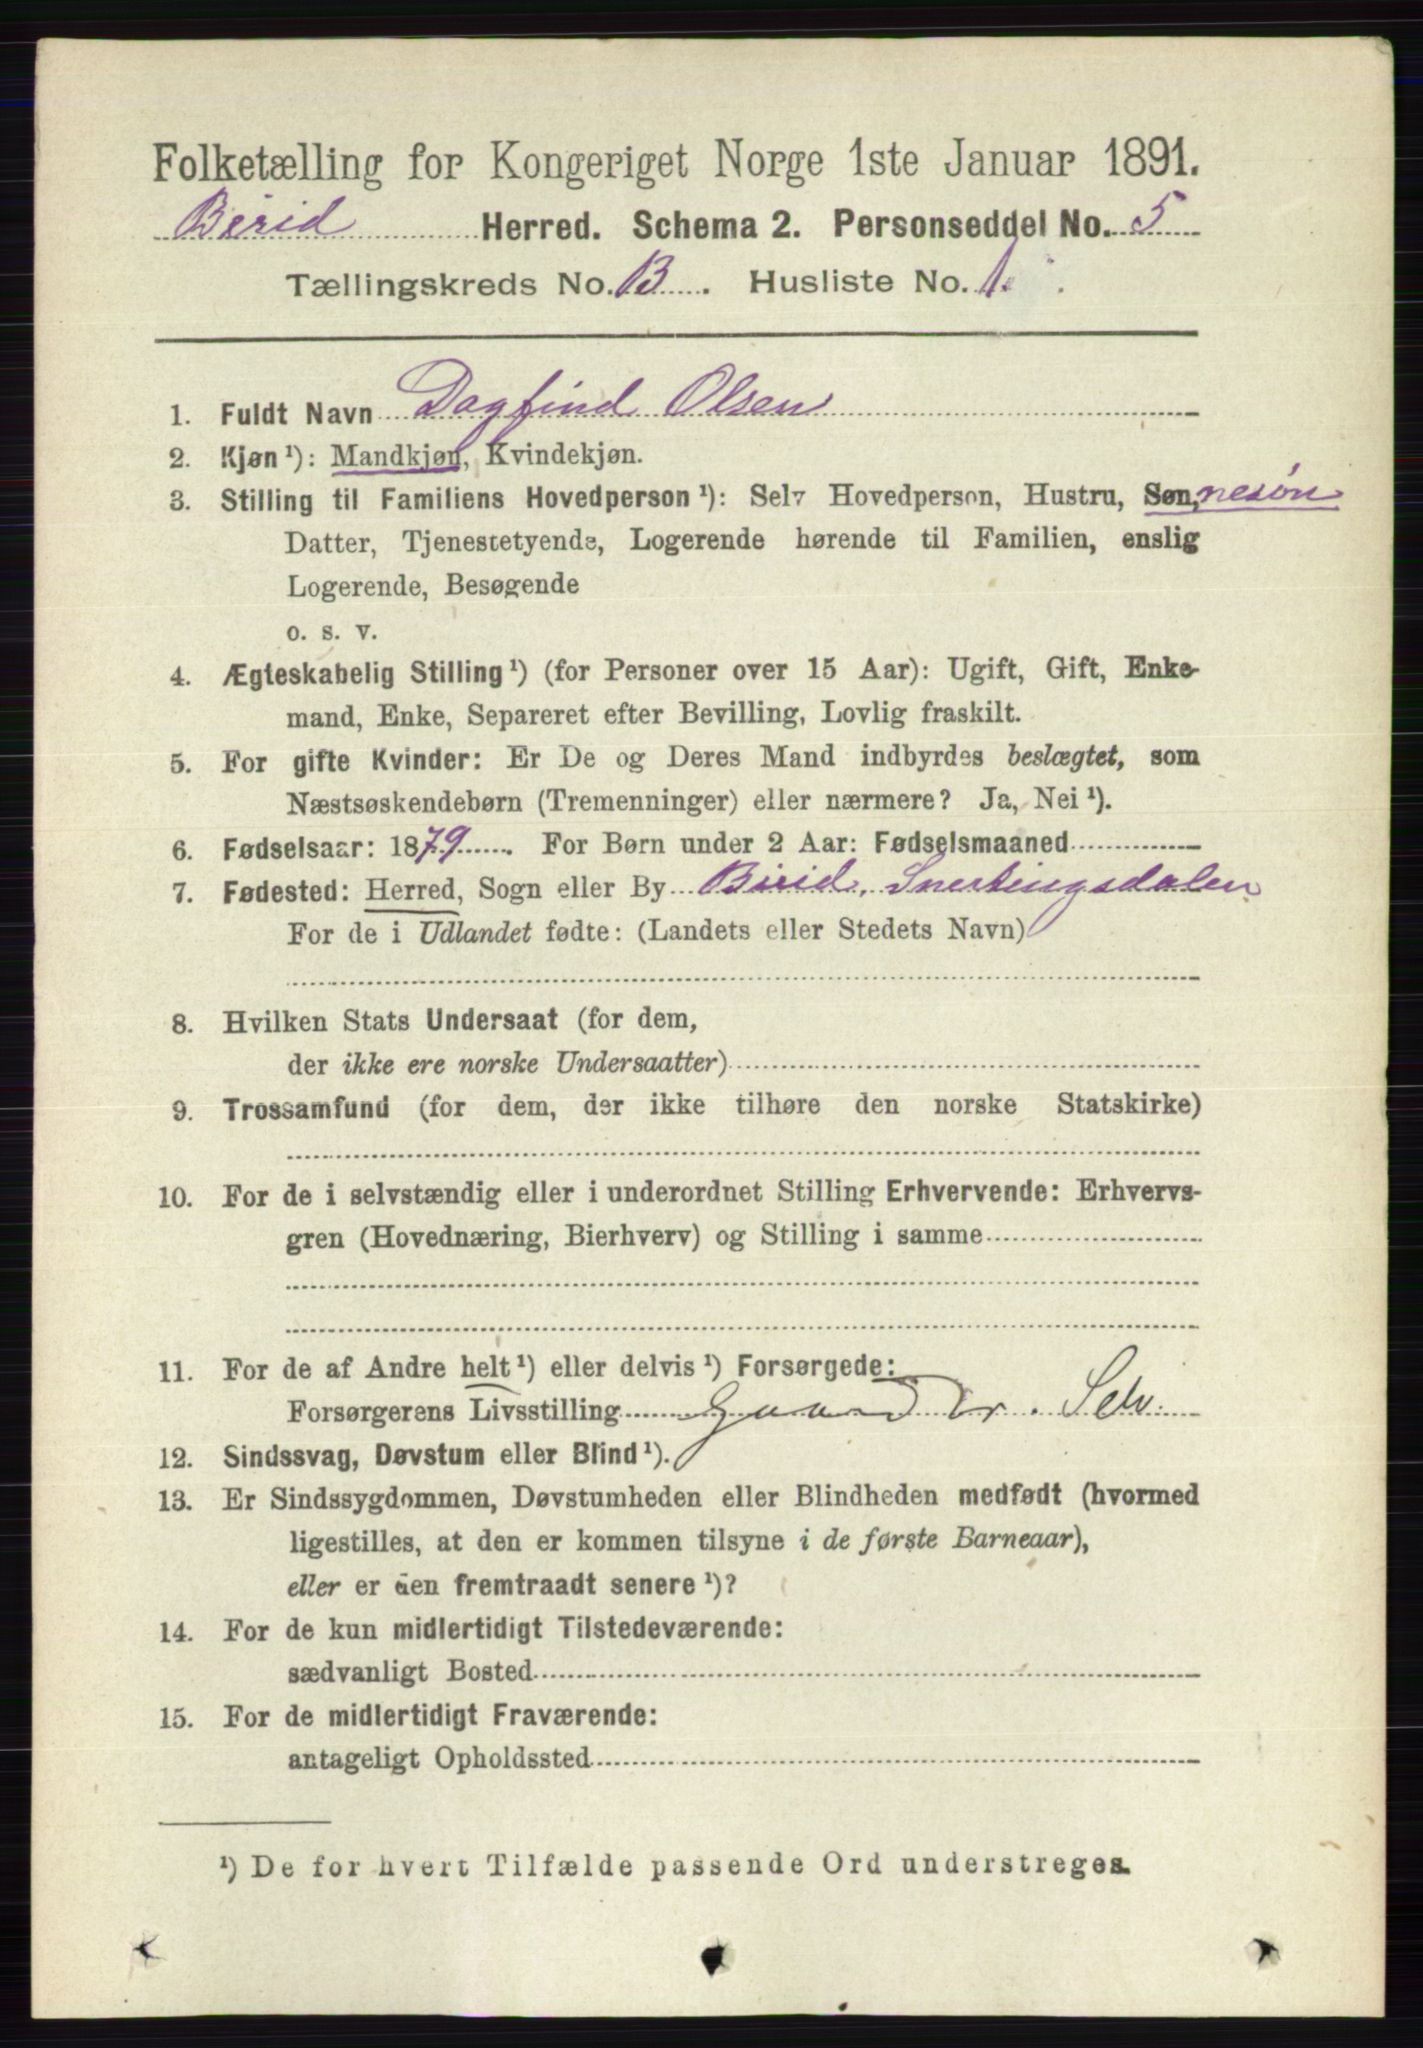 Folketælling for Kongeriget Norge 1ste Januar 1891.
Birid Herred. Schema 2. Personseddel No. 5
Tællingskreds No. B. Husliste No. 1.
1. Fuldt Navn Dagfind Olsen
2. Kjøn¹): Mandkjøn, Kvindekjøn.
3. Stilling til Familiens Hovedperson¹): Selv Hovedperson, Hustru, Søn, nesøn
Datter, Tjenestetyende, Logerende hørende til Familien, enslig
Logerende, Besøgende
o. s. v.
4. Ægteskabelig Stilling¹) (for Personer over 15 Aar): Ugift, Gift, Enke-
mand, Enke, Separeret efter Bevilling, Lovlig fraskilt.
5. For gifte Kvinder: Er De og Deres Mand indbyrdes beslægtet, som
Næstsøskendebørn (Tremenninger) eller nærmere? Ja, Nei¹).
6. Fødselsaar: 1879. For Børn under 2 Aar: Fødselsmaaned
7. Fødested: Herred, Sogn eller By Birid, Snertingsdalen
For de i Udlandet fødte: (Landets eller Stedets Navn)
8. Hvilken Stats Undersaat (for dem,
der ikke ere norske Undersaatter)
9. Trossamfund (for dem, der ikke tilhøre den norske Statskirke)
10. For de i selvstændig eller i underordnet Stilling Erhvervende: Erhvervs-
gren (Hovednæring, Bierhverv) og Stilling i samme
11. For de af Andre helt¹) eller delvis¹) Forsørgede:
Forsørgerens Livsstilling Gaardbr. Selv.
12. Sindssvag, Døvstum eller Blind¹).
13. Er Sindssygdommen, Døvstumheden eller Blindheden medfødt (hvormed
ligestilles, at den er kommen tilsyne i de første Barneaar),
eller er den fremtraadt senere¹)?
14. For de kun midlertidigt Tilstedeværende:
sædvanligt Bosted
15. For de midlertidigt Fraværende:
antageligt Opholdssted
¹) De for hvert Tilfælde passende Ord understreges.